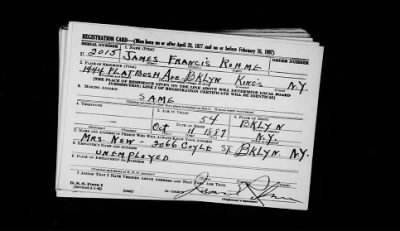 REGISTRATION CARD—(Men born on or after April 28, 1877 and on or before February 16, 1897)
SERIAL NUMBER 1. NAME (Print) ORDER NUMBER
U 2015 JAMES FRANCIS ROHME
2. PLACE OF RESIDENCE (Print)
1944 FLATBUSH AVE BKLYN KINGS N.Y.
[THE PLACE OF RESIDENCE GIVEN ON THE LINE ABOVE WILL DETERMINE LOCAL BOARD
JURISDICTION; LINE 2 OF REGISTRATION CERTIFICATE WILL BE IDENTICAL]
3. MAILING ADDRESS
SAME
4. TELEPHONE 5. AGE IN YEARS 6. PLACE OF BIRTH
54 BKLYN
DATE OF BIRTH
Oct 11 1887 N.Y.
7. NAME AND ADDRESS OF PERSON WHO WILL ALWAYS KNOW YOUR ADDRESS
MRS. NEW - 2066 COYLE ST. BKLYN. N.Y.
8. EMPLOYER'S NAME AND ADDRESS
UNEMPLOYED
9. PLACE OF EMPLOYMENT OR BUSINESS
I AFFIRM THAT I HAVE VERIFIED ABOVE ANSWERS AND THAT THEY ARE TRUE.
D. S. S. Form 1